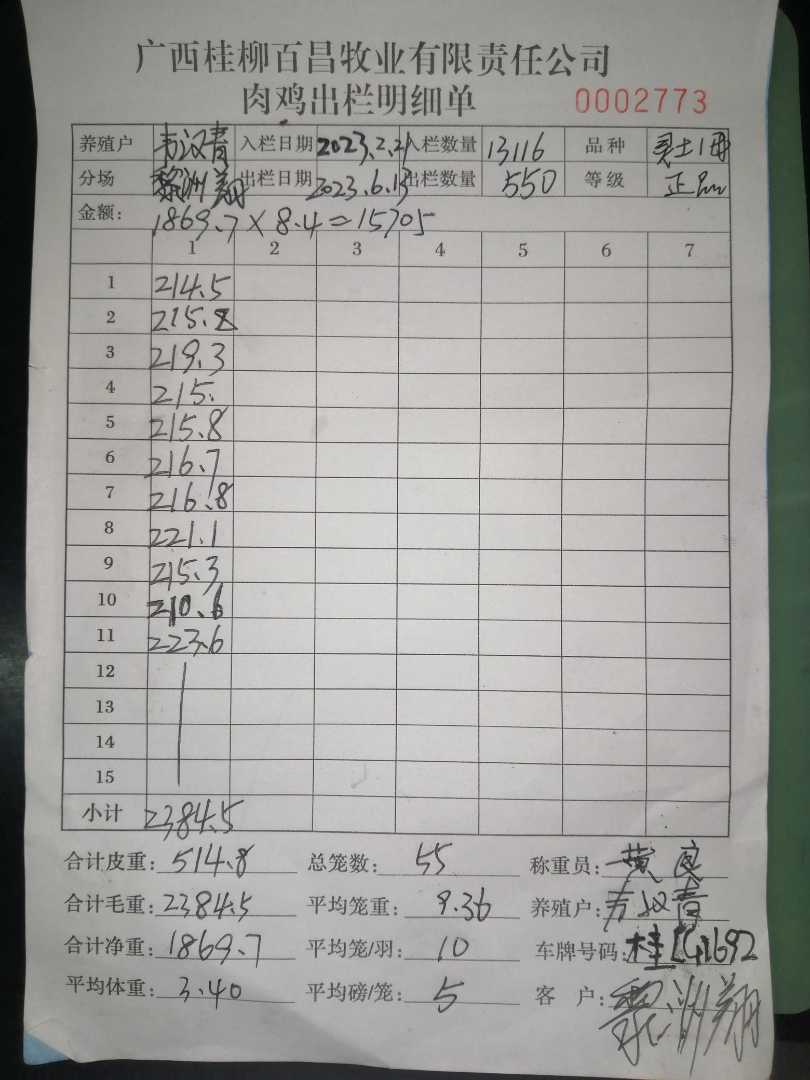 广西桂柳百昌牧业有限责任公司
肉鸡出栏明细单 0002773
养殖户 韦汉青 入栏日期 2023.2.21 入栏数量 13116 品种 灵土1母
分场 黎洲翔 出栏日期 2023.6.13 出栏数量 550 等级 正品
金额: 1869.7×8.4=15705
1 2 3 4 5 6 7
1 214.5
2 215.8
3 219.3
4 215.
5 215.8
6 216.7
7 216.8
8 221.1
9 215.3
10 210.6
11 223.6
12
13
14
15
小计 2384.5
合计皮重: 514.8 总笼数: 55 称重员: 黄良
合计毛重: 2384.5 平均笼重: 9.36 养殖户: 韦汉青
合计净重: 1869.7 平均笼/羽: 10 车牌号码: 桂
平均体重: 3.40 平均磅/笼: 5 客 户: 黎洲翔